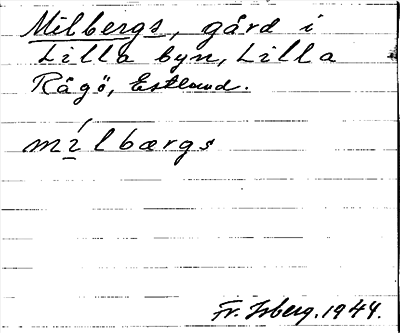 Milbergs, gård i
Lilla byn, Lilla
Rågö, Estland.
mílbærgs
Fr. Isberg. 1944.